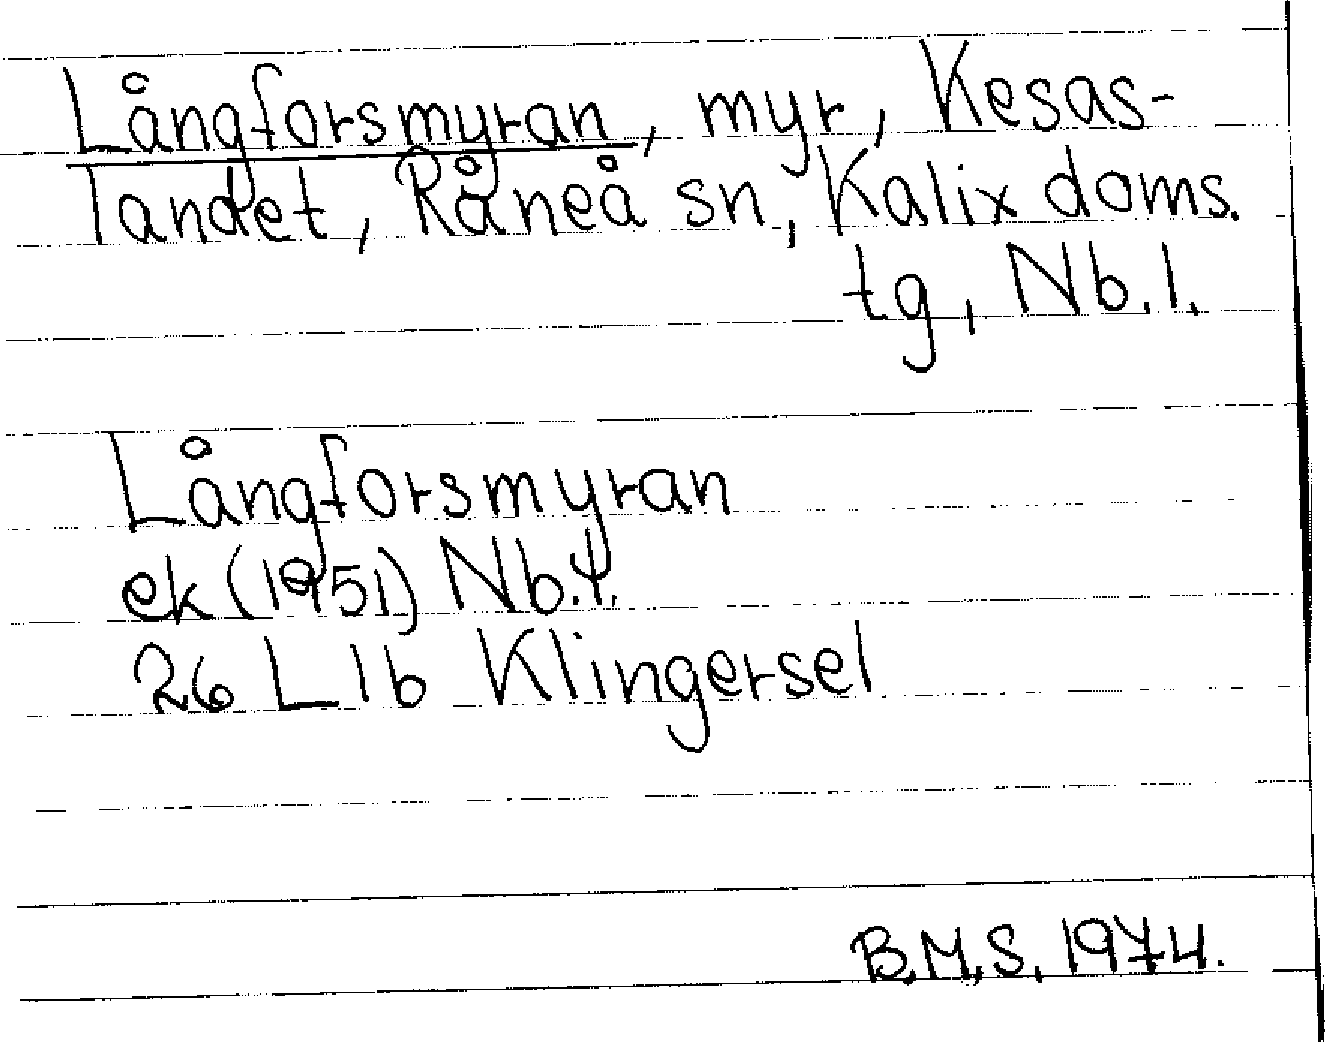 Långforsmyran, myr, Kesas-
landet, Råneå sn, Kalix doms.
tg, Nb.l.
Långforsmyran
ek (1951) Nb.l.
26 L 1b Klingersel
B.M.S. 1974.